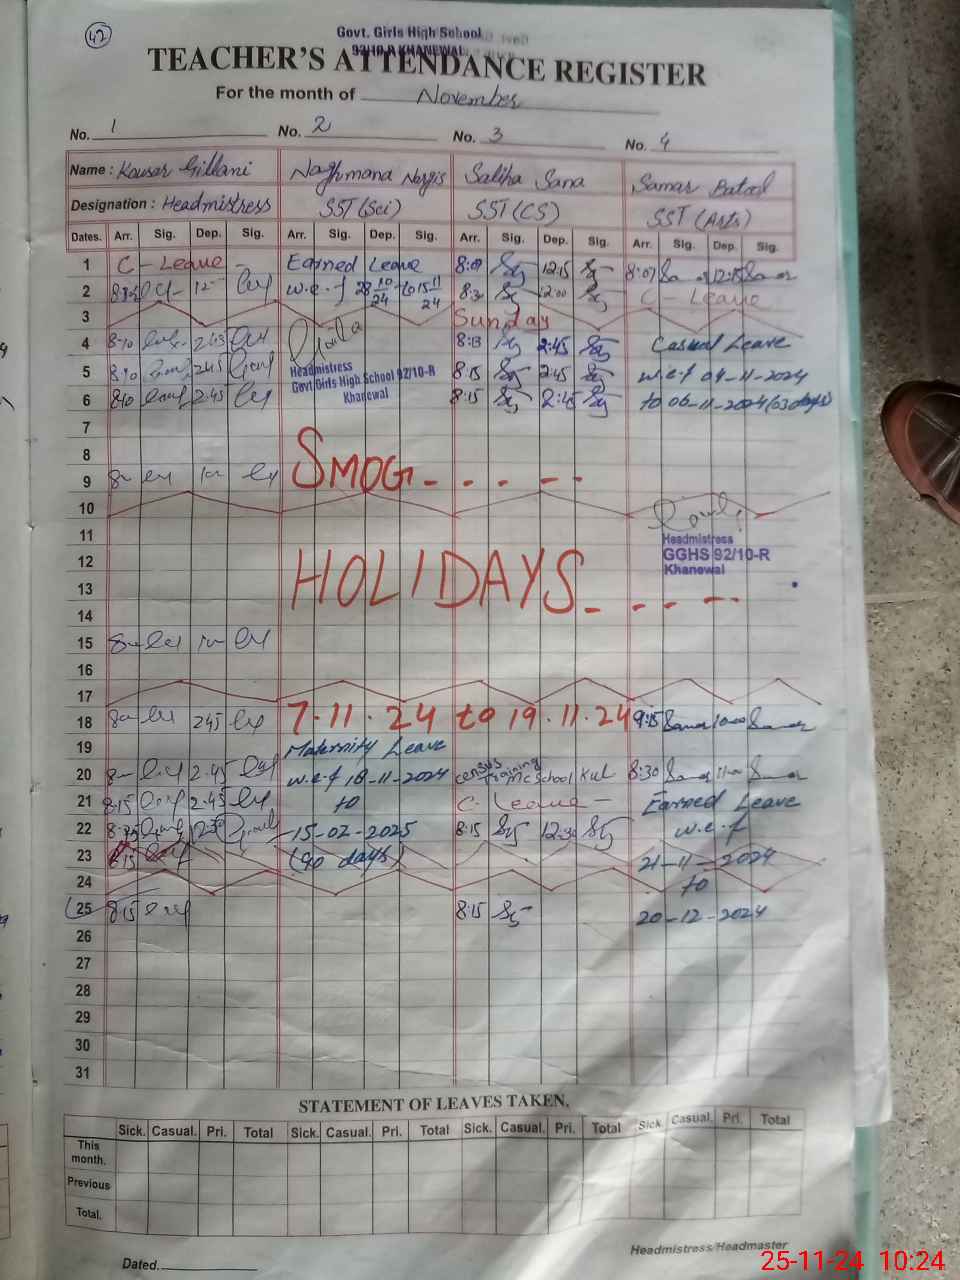 42
Govt. Girls High School
92/10-R KHANEWAL
TEACHER'S ATTENDANCE REGISTER
For the month of November
No. 1 No. 2 No. 3 No. 4
Name : Kousar Gillani Naghmana Nargis Saliha Sana Samar Batool
Designation : Headmistress SST (Sci) SST (CS) SST (Arts)
Dates. Arr. Sig. Dep. Sig. Arr. Sig. Dep. Sig. Arr. Sig. Dep. Sig. Arr. Sig. Dep. Sig.
1 C - Leave - Earned Leave 8:07 12:15 8:07 12:15
2 w.e.f 28 10/24 to 15 11/24 8:30 12:00 C - Leave
3 Sunday
4 8:10 2:45 8:13 2:45 Casual Leave
5 8:10 2:45 8:15 2:45 w.e.f 04-11-2024
6 8:10 2:45 8:15 2:45 to 06-11-2024 (03 days)
Headmistress
Govt Girls High School 92/10-R
Khanewal
7
8
9 SMOG - - - - -
10
11
12 HOLIDAYS - - - - -
13
14
Headmistress
GGHS 92/10-R
Khanewal
15
16
17
18 2:45 7.11.24 to 19.11.24 9:15 10:00
19 Maternity Leave
20 2:45 w.e.f 18-11-2024 Census Training MC School Kwl 8:30
21 8:15 2:45 to C - Leave - Earned Leave
22 15-02-2025 8:15 12:30 w.e.f
23 8:15 (90 days) 21-11-2024
24 to
25 8:15 8:15 20-12-2024
26
27
28
29
30
31
STATEMENT OF LEAVES TAKEN.
Sick. Casual. Pri. Total Sick. Casual. Pri. Total Sick. Casual. Pri. Total Sick. Casual. Pri. Total
This month.
Previous
Total.
Headmistress/Headmaster
Dated.
25-11-24 10:24